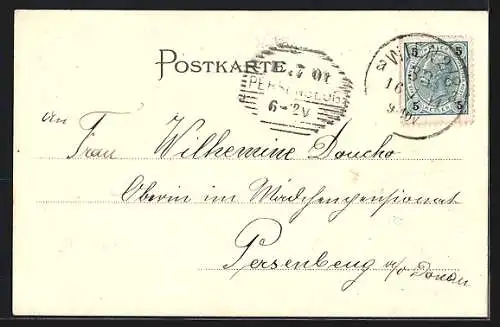 POSTKARTE
7 01
PERSENBEUG
6-2V
5 5
5 5
16
9
An
Frau Wilhemine Doucha
Oberin im Mädchenpensionat
Persenbeug a/o Donau